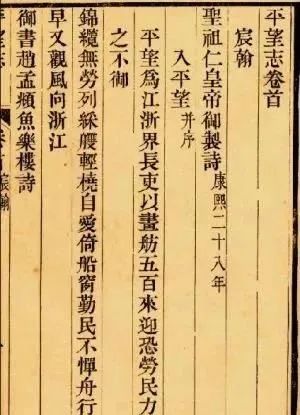 平望志卷首
宸翰
聖祖仁皇帝御製詩康熙二十八年
入平望并序
平望爲江浙界長吏以畫舫五百來迎恐勞民力
之不御
錦纜無勞列綵艘輕橈自愛倚船窗勤民不憚舟行
早又觀風向浙江
御書趙孟頫魚樂樓詩